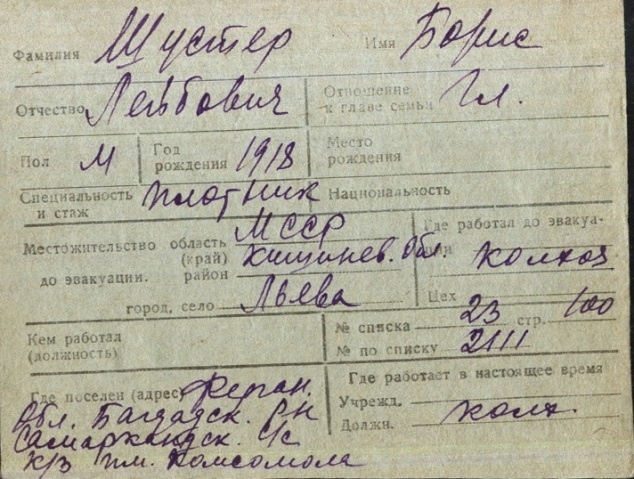 Фамилия Шустер Имя Борис
Отчество Лейбович Отношение к главе семьи Гл.
Пол М Год рождения 1918 Место рождения
Специальность и стаж плотник Национальность
Местожительство область МССР Где работал до эвакуа-
(край) Кишинев. Обл. ции колхоз
до эвакуации. район
город, село Льева Цех
Кем работал № списка 23 стр. 100
(должность) № по списку 2111
Где поселен (адрес) Ферган. Где работает в настоящее время
Обл. Багдадск. Р-н Учрежд.
Самаркандск. с/с Должн. колх.
к/з им. Комсомола